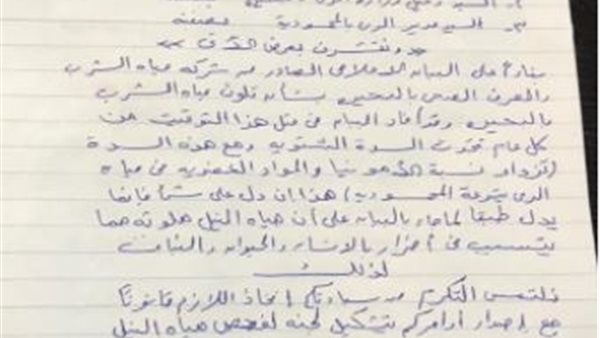 ٢- السيد وكيل وزارة الرى
٣- السيد مدير الرى بالمحمودية بصفته
ونتشرف بعرض الآتى
بناءاً على البيان الاعلامى الصادر من شركة مياه الشرب
والصرف الصحى بالبحيرة بشأن تلوث مياه الشرب
بالبحيرة وقد أفاد البيان فى مثل هذا التوقيت من
كل عام تحدث السدة الشتوية ومع هذه السدة
(تزداد نسبة الأمونيا والمواد العضوية فى مياه
الرى بترعة المحمودية) هذا ان دل على شئ فإنما
يدل طبقا لما جاء بالبيان على أن مياه النيل ملوثه مما
يتسبب فى أضرار بالانسان والحيوان والنبات
لذلك
نلتمس التكرم من سيادتكم إتخاذ اللازم قانوناً
مع إصدار أوامركم بتشكيل لجنه لفحص مياه النيل